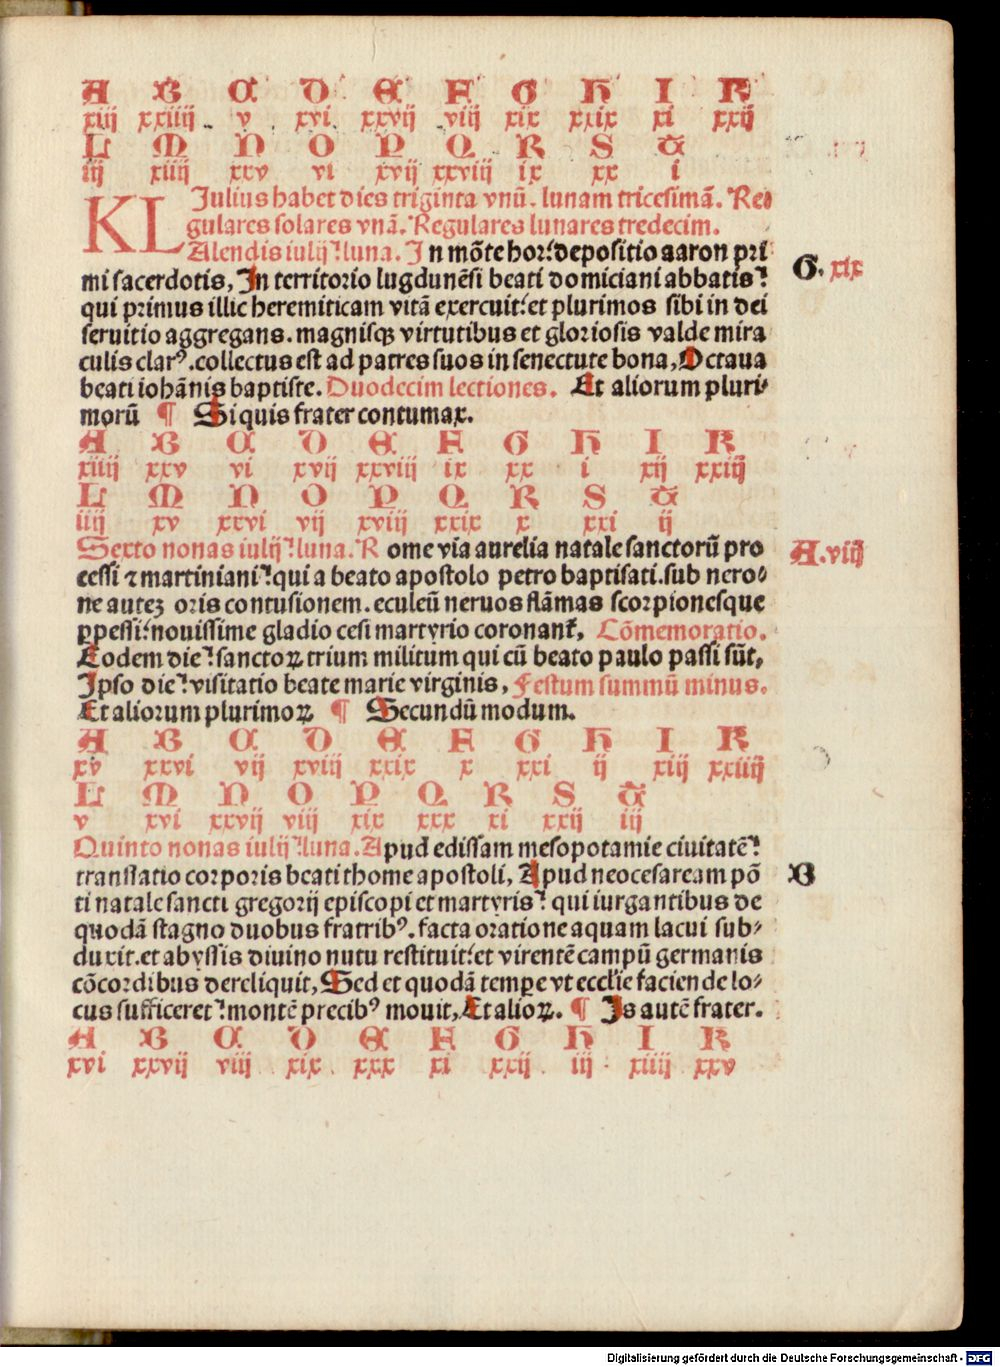 A B C D E F G H I K
xiij xxiiij v xvi xxvij viij xix xxix xi xxij
L M N O P Q R S T
iij xiiij xxv vi xvij xxviij ix xx i
KL Julius habet dies triginta vnū. lunam tricesimā. Re-
gulares solares vnā. Regulares lunares tredecim.
Alendis iulij: luna. In mōte hor: depositio aaron pri
mi sacerdotis, In territorio lugdunēsi beati domiciani abbatis:
G. xix
qui primus illic heremiticam vitā exercuit: et plurimos sibi in dei
seruitio aggregans. magnisqꝫ virtutibus et gloriosis valde mira
culis clarꝰ. collectus est ad patres suos in senectute bona, Octaua
beati iohānis baptiste. Duodecim lectiones. Et aliorum pluri-
morū ¶ Si quis frater contumax.
A B C D E F G H I K
xiiij xxv vi xvij xxviij ix xx i xij xxiij
L M N O P Q R S T
iiij xv xxvi vij xviij xxix x xxi ij
Sexto nonas iulij: luna. Rome via aurelia natale sanctorū pro
A. viij
cessi ⁊ martiniani: qui a beato apostolo petro baptisati. sub nero-
ne auteꝫ oris contusionem. eculeū neruos flāmas scorpionesque
ꝑpessi: nouissime gladio cesi martyrio coronanť, Cōmemoratio.
Eodem die: sanctoꝝ trium militum qui cū beato paulo passi sūt,
Ipso die: visitatio beate marie virginis, Festum summū minus.
Et aliorum plurimoꝝ ¶ Secundū modum.
A B C D E F G H I K
xv xxvi vij xviij xxix x xxi ij xiij xxiiij
L M N O P Q R S T
v xvi xxvij viij xix xxx xi xxij iij
Quinto nonas iulij: luna. Apud edissam mesopotamie ciuitatē:
translatio corporis beati thome apostoli, Apud neocesaream pō
B
ti natale sancti gregorij episcopi et martyris: qui iurgantibus de
quodā stagno duobus fratribꝰ. facta oratione aquam lacui sub-
duxit. et abyssis diuino nutu restituit: et virentē campū germanis
cōcordibus dereliquit, Sed et quodā tempe vt ecclie faciende lo-
cus sufficeret: montē precibꝰ mouit, Et alioꝝ. ¶ Is autē frater.
A B C D E F G H I K
xvi xxvij viij xix xxx xi xxij iij xiiij xxv
Digitalisierung gefördert durch die Deutsche Forschungsgemeinschaft - DFG